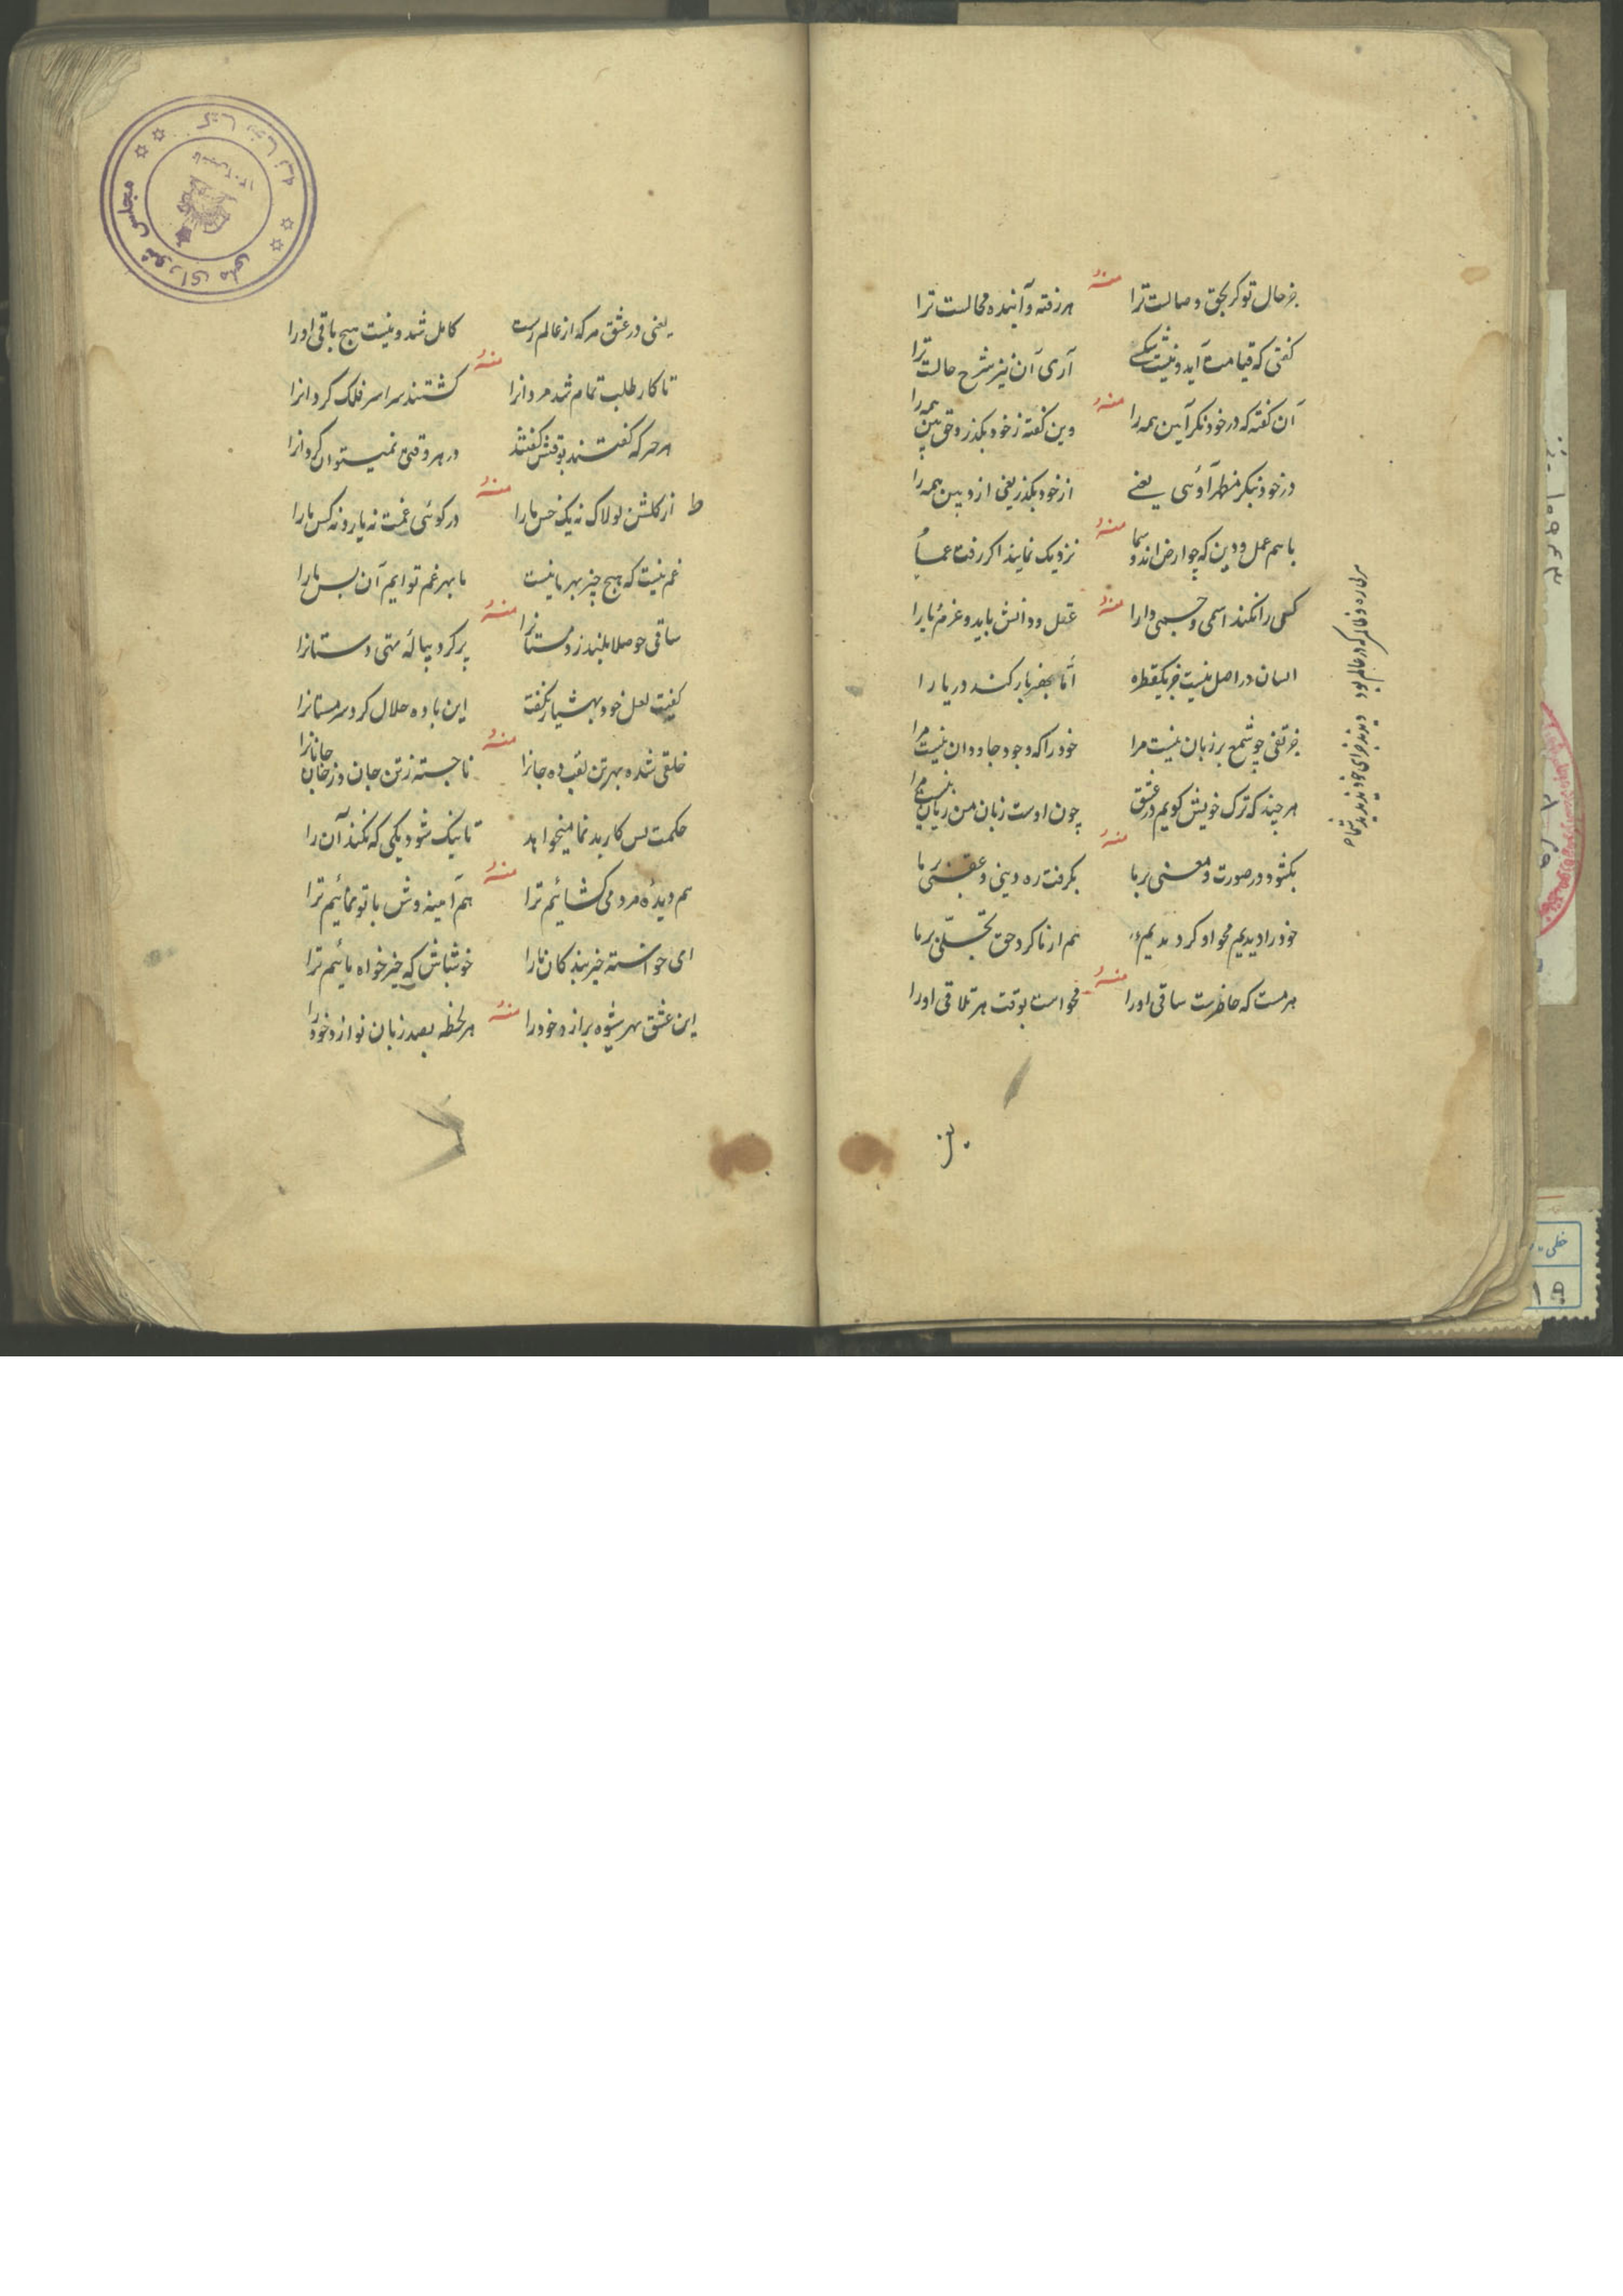 جز حال تو کر بحق وصالست ترا
منه
هر رفته و آینده محالست ترا
کفتی که قیامت آید و نیست شکی
آری آن نیز شرح حالست ترا
آن کفته که در خود نکر آیین همه را
منه
وین کفته ز خود بکذر و حق بین همه را
در خود نبکر مظهر آوئی یعنے
از خود بکذر یعنی ازو بین همه را
با هم عمل و دین که چو ارض اند و سما
منه
نزدیک نمایند اکر رفت عما
کس را نکند اسمی و جسمی دارا
منه
عقل و دانش باید و عزم یارا
انسان در اصل نیست جز یکقطره
امّا بهنر بار کند دریا را
جز نفی چو شمع بر زبان نیست مرا
خود را که وجود جاودان نیست مرا
هر چند که ترک خویش کویم در عشق
چون اوست زبان من زیان نیست مرا
منه
بکشود در صورت و معنی بر ما
بکرفت ره دینی و عقبی بر ما
خود را دیدیم محو او کردیدیم
هم از ما کرد حق تجلّی بر ما
هر مست که حاظرست ساقی او را
منه
محو است بوقت هر تلاقی او را
یعنی در عشق هر که از عالم رست
کامل شد و نیست هیچ باقی او را
منه
تا کار طلب تمام شد مردانرا
کشتند سراسر فلک کردانرا
هر حر که کفتند بوقتش کفتند
در هر وقتی نمیتوان کرد انرا
منه
ط از کلشن لولاک نه یک خس ما را
در کوئی غمت نه یار و نه کس ما را
غم نیست که هیچ چیز بهر ما نیست
ما بهر غم تو ایم آن بس ما را
منه
ساقی چو صلا بلند زد مستانرا
پر کرد پیالهٔ متی دستانرا
کیفیت لعل خود بهشیار نکفت
این باده حلال کرد سر مستانرا
منه
خلقی شده بهر تن تعب ده جانرا
نا جسته ز تن جان و ز جان جانانرا
حکمت بس کار بد نما میخواهد
تا نیک شود یکی که نکند آن را
منه
هم دیدهٔ مردمی کشائیم ترا
هم آیینه وش با تو نمائیم ترا
ای خواسته خیر بندکان ما را
خوشباش که خیر خواه مائیم ترا
این عشق بهر شیوه برازد خود را
منه
هر لحظه بصد زبان نوازد خود را
مجلس شورای ملی